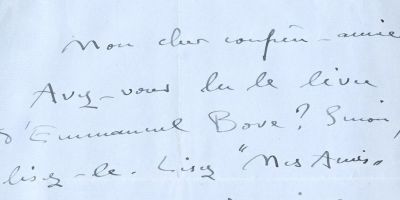 Mon cher confrère-amie
Avez-vous lu le livre
d'Emmanuel Bove? Sinon,
lisez-le. Lisez "Mes Amis"